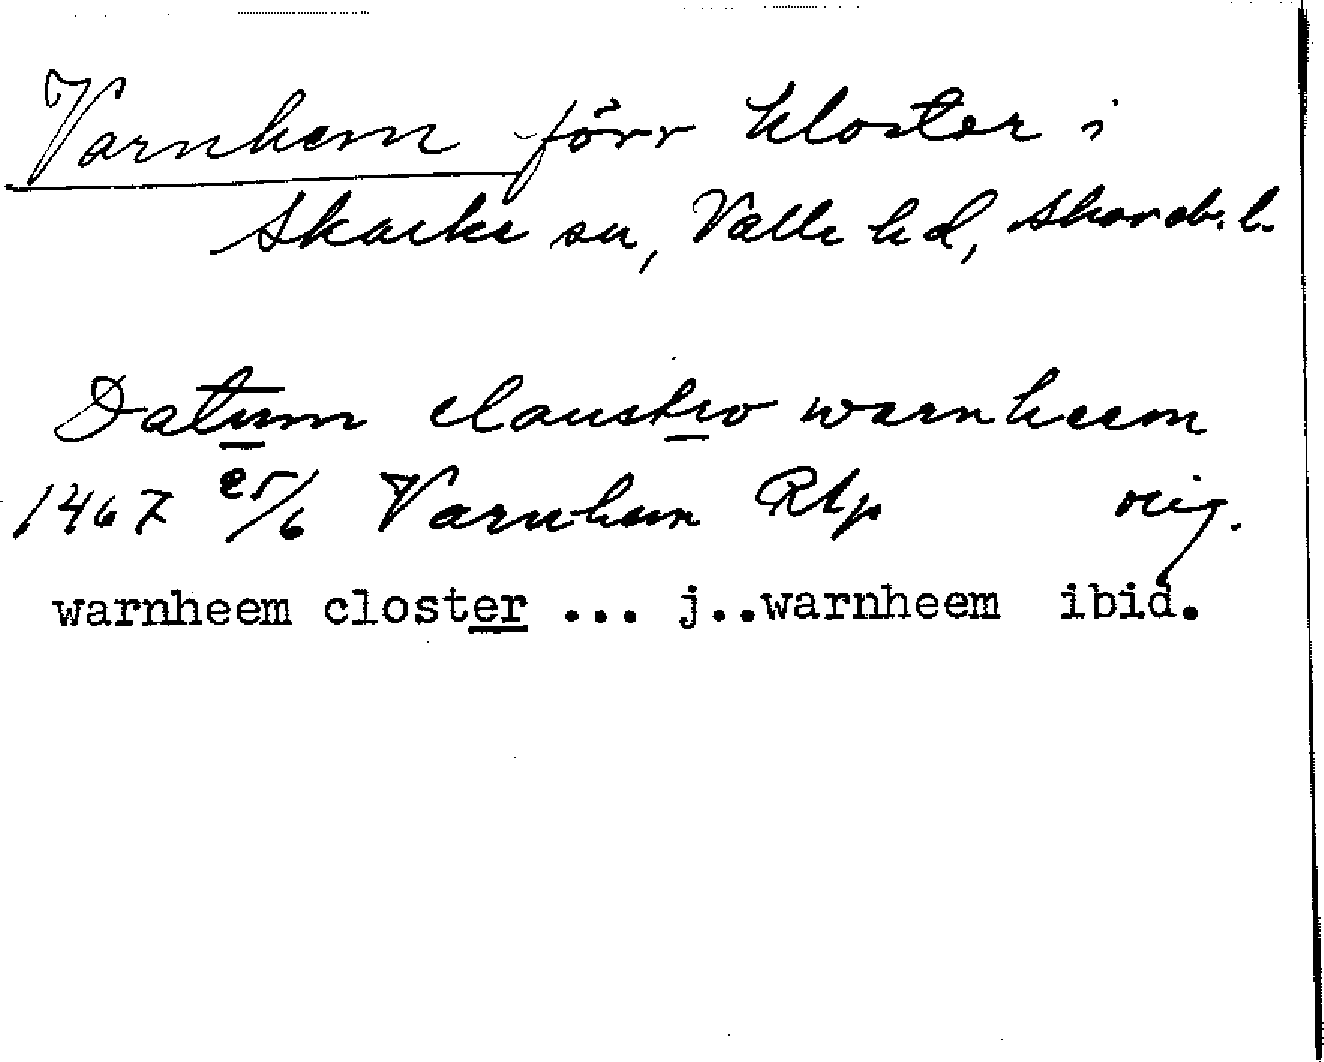 Varnhem förr kloster i
Skarke sn, Valle hd, Skarab. l.
Datum claustro warnheem
1467 25/6 Varnhem RAp orig.
warnheem closter ... j..warnheem ibid.